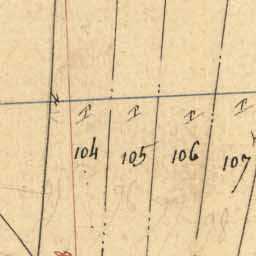 I I I I
104 105 106 107
8